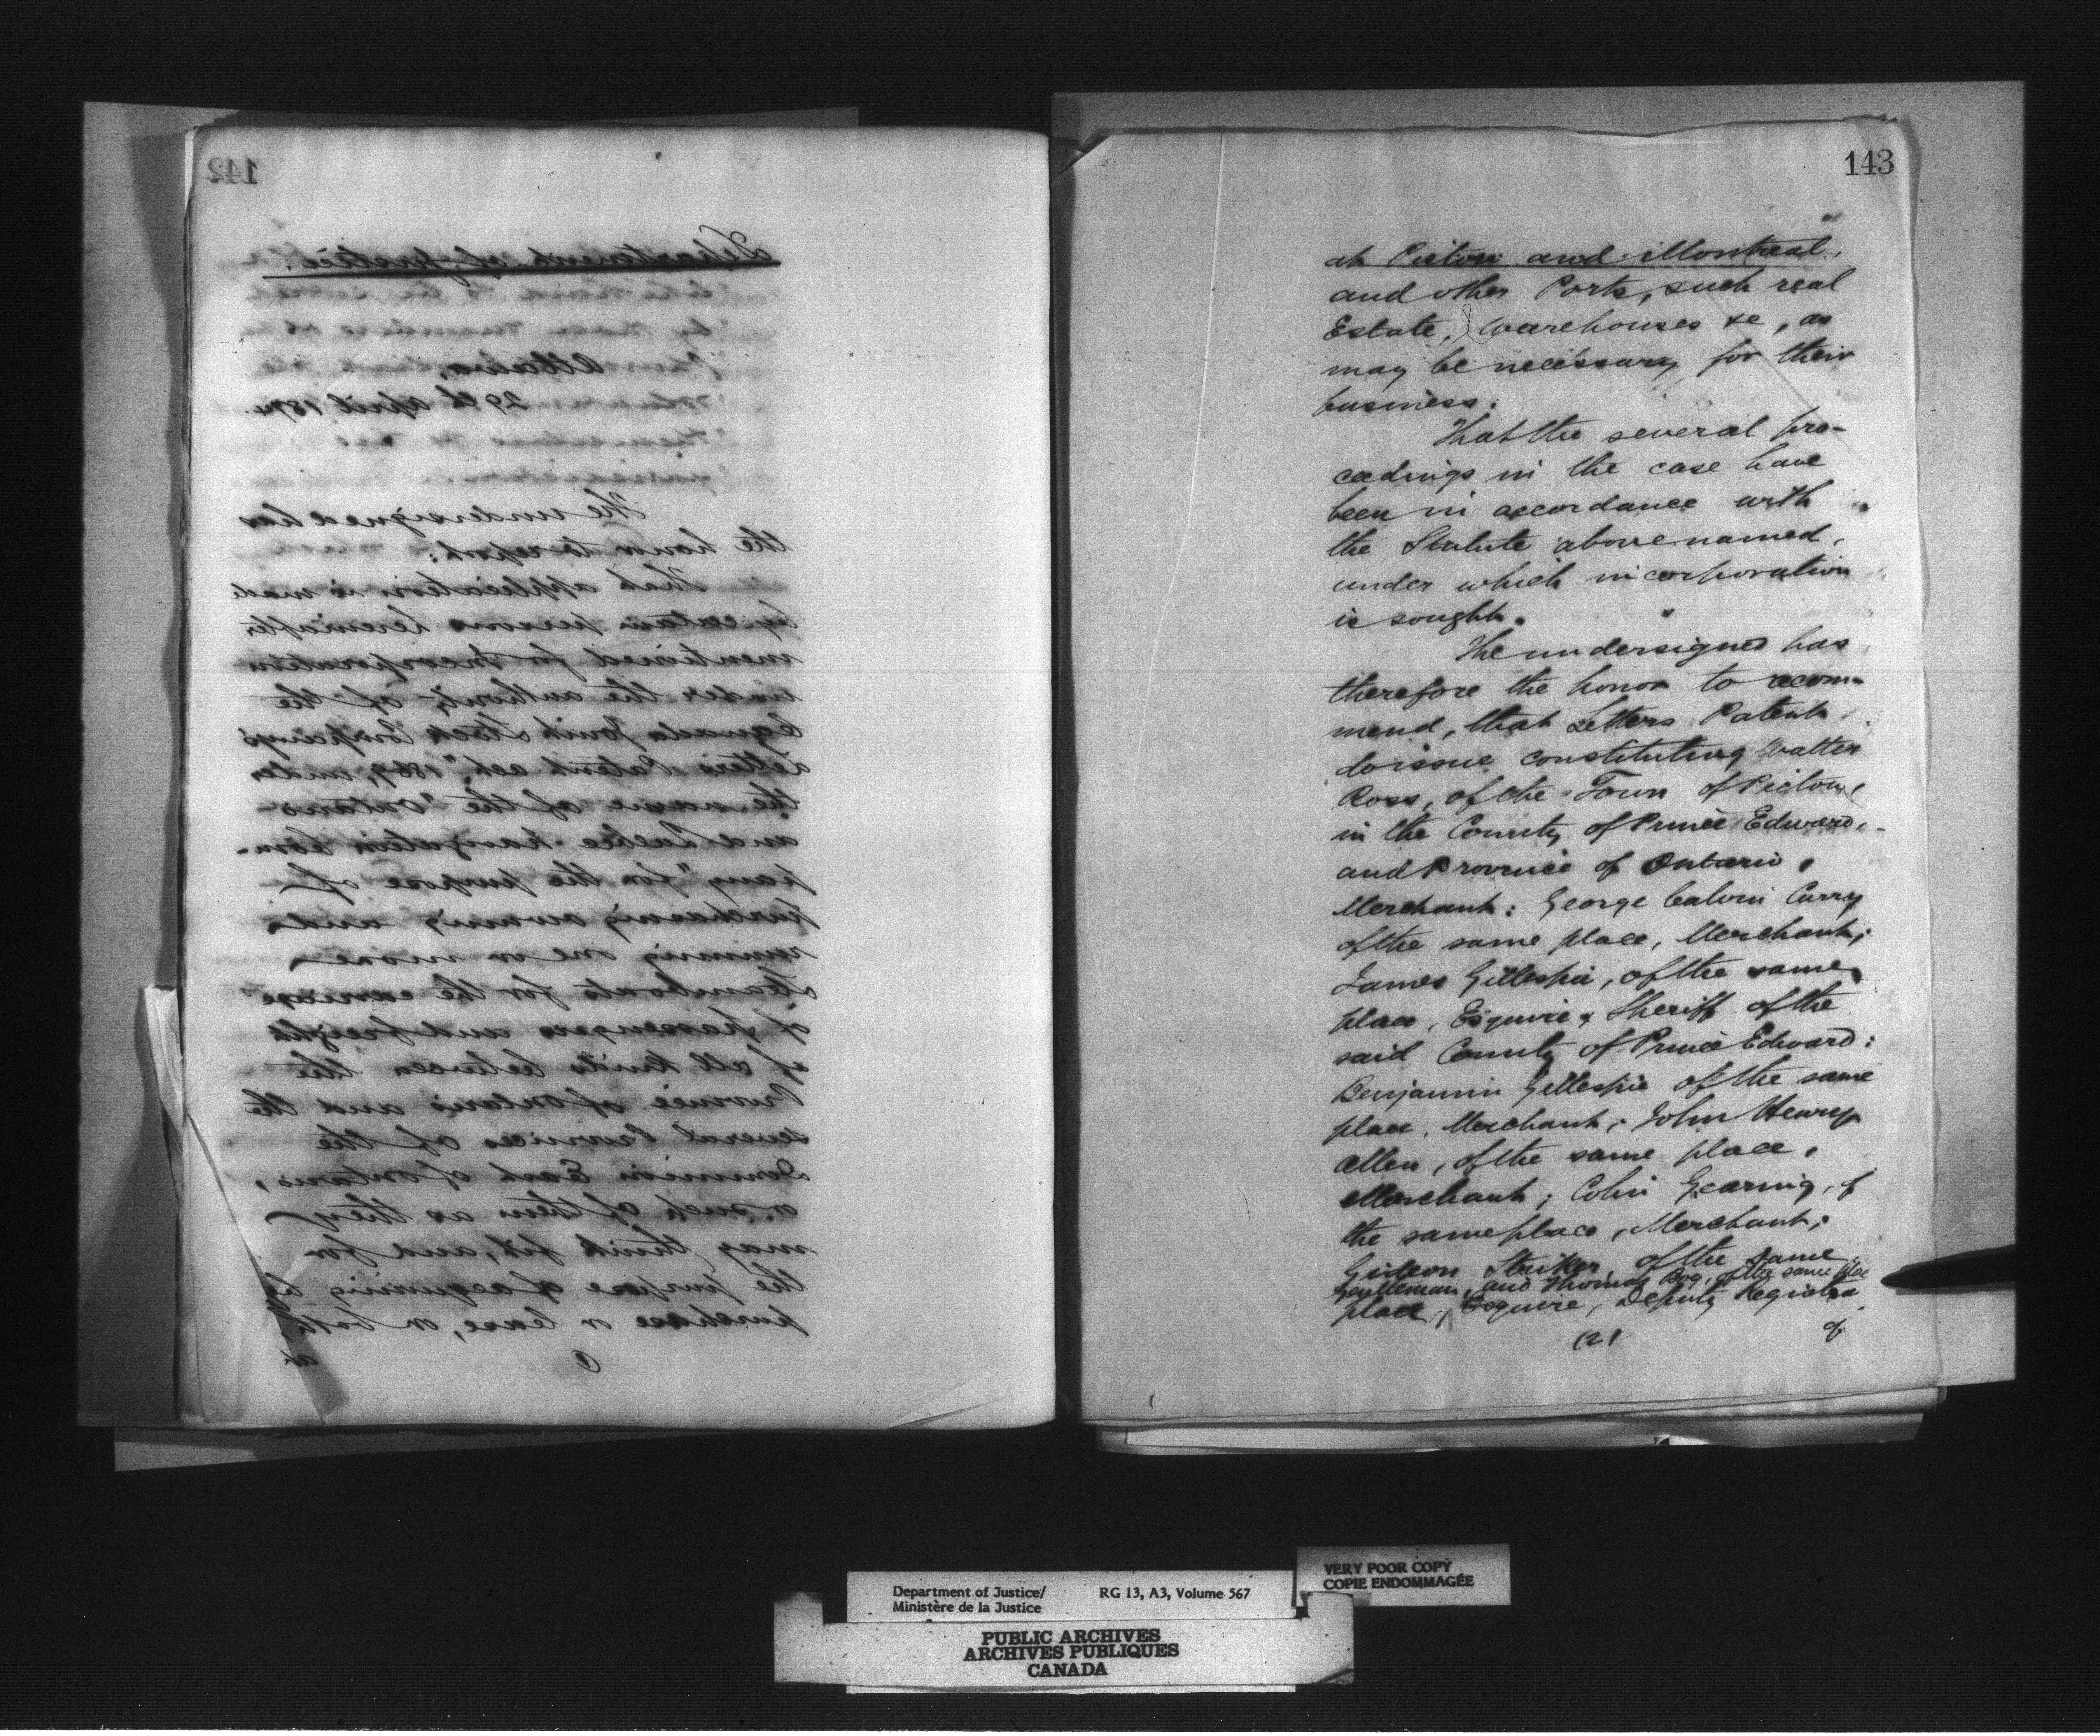 142
Department of Justice.
Ottawa,
29th April 1874.
The undersigned has
the honor to report:
That application is made
by certain persons hereinafter
mentioned for Incorporation
under the authority of the
Canada Joint Stock Company's
Letters Patent Act, "1869, under
the name of the "Ontario
and Quebec Navigation Com-
pany" for the purpose of
purchasing owning and
running one or more
Steamboats for the carriage
of passengers and freight
of all kinds between the
Province of Ontario and the
several Provinces of the
Dominion East of Ontario,
or such of them as they
may think fit, and for
the purpose of acquiring by
purchase or lease, or both,
at
143
at Picton and Montreal,
and other Ports, such real
Estate, Warehouses &c, as
may be necessary for their
business:
That the several pro-
ceedings in the case have
been in accordance with
the Statute above named,
under which incorporation
is sought.
The undersigned has
therefore the honor to recom-
mend, that Letters Patent
do issue constituting Walter
Ross, of the Town of Picton,
in the County of Prince Edward,
and Province of Ontario,
Merchant: George Calvin Curry
of the same place, Merchant;
James Gillespie, of the same
place, Esquire & Sheriff of the
said County of Prince Edward:
Benjamin Gillespie of the same
place, Merchant; John Henry
Allen, of the same place,
Merchant; Colin Gearing, of
the same place, Merchant;
Gideon Striker of the same
Gentleman, and Thomas Bog, of the same place
place, Esquire, Deputy Registrar
(2)
of
Department of Justice/
Ministère de la Justice
RG 13, A3, Volume 567
VERY POOR COPY
COPIE ENDOMMAGÉE
PUBLIC ARCHIVES
ARCHIVES PUBLIQUES
CANADA